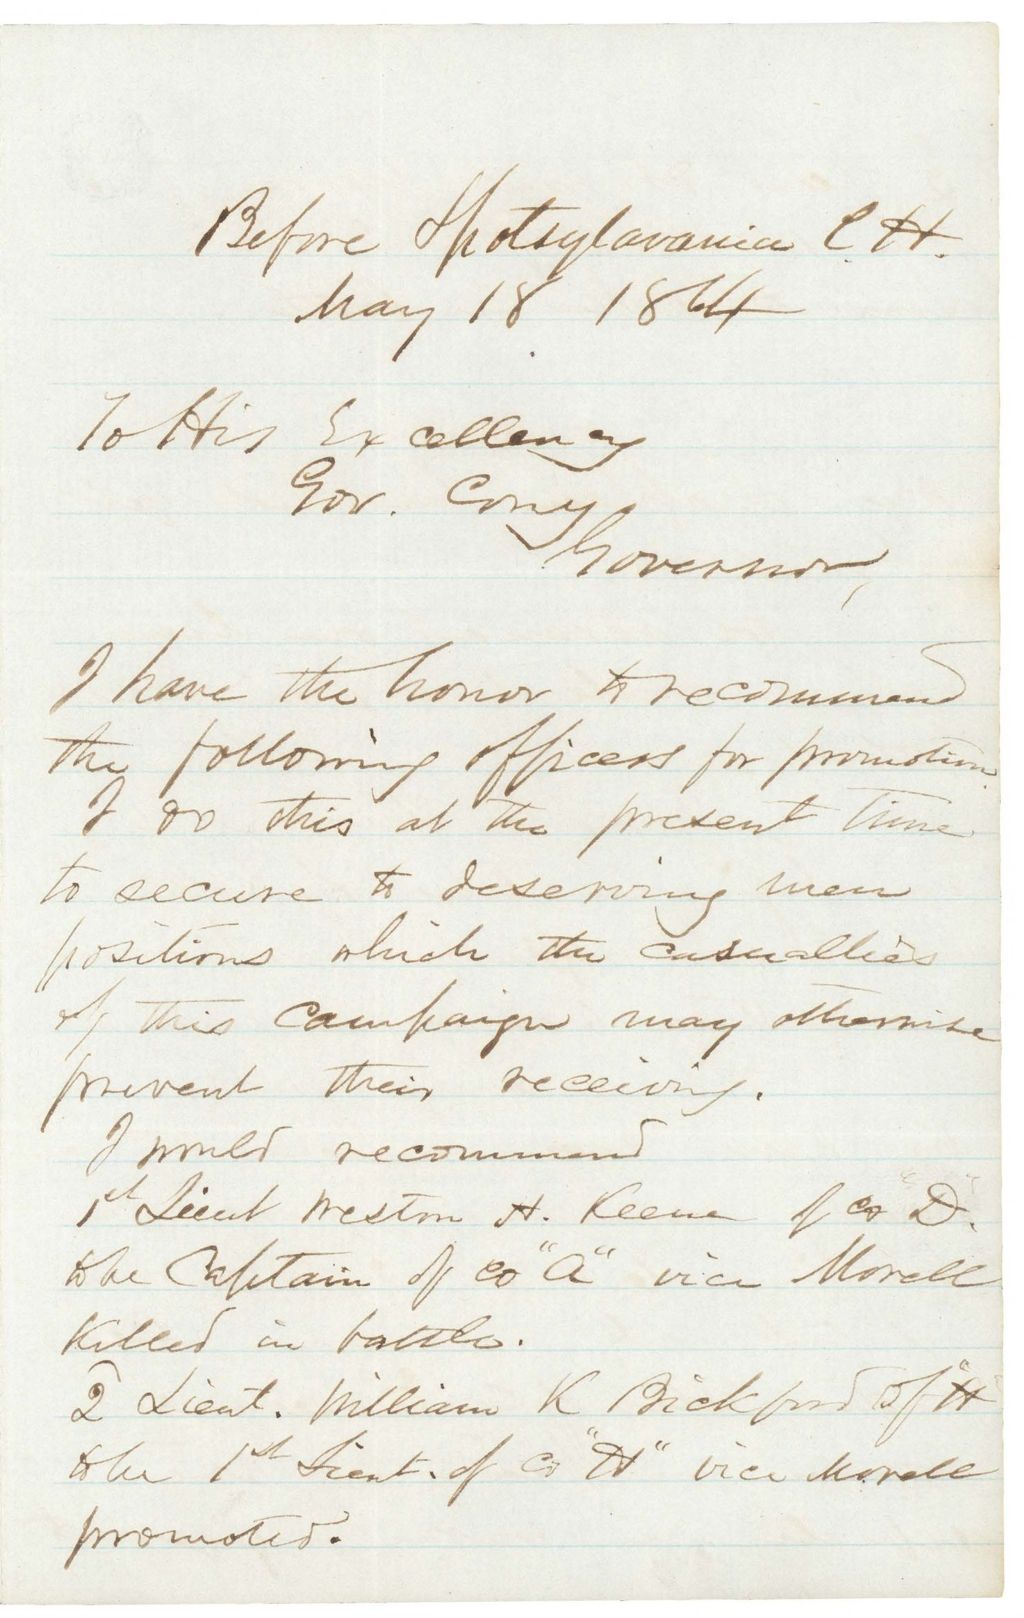 Before Spotsylavania C. H.
May 18 1864
To His Excellency
Gov. Cony
Governor,
I have the honor to recommend
the following officers for promotion.
I do this at the present time
to secure to deserving men
positions which the casualties
of this campaign may otherwise
prevent their receiving.
I would recommend
1st Lieut Weston H. Keene of co "D".
to be Captain of co "A" vice Morell
Killed in battle.
2 Lieut. William K Bickford of "H"
to be 1st Lieut. of co "H" vice Morell
promoted.